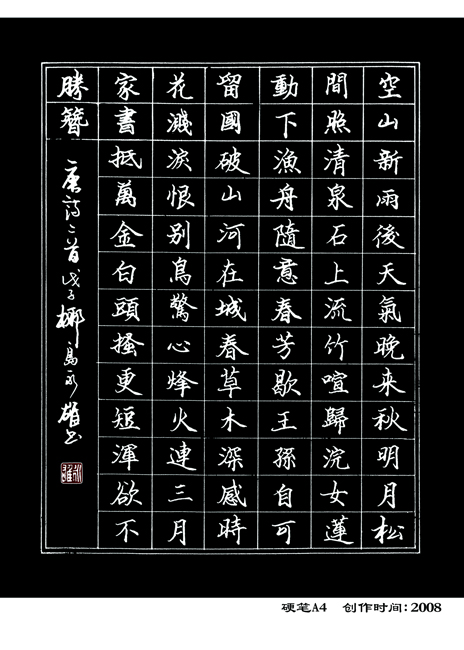 空山新雨後天氣晚来秋明月松
間照清泉石上流竹喧歸浣女蓮
動下漁舟隨意春芳歇王孫自可
留國破山河在城春草木深感時
花濺淚恨別鳥驚心烽火連三月
家書抵萬金白頭搔更短渾欲不
勝簪
唐詩二首戊子椰島永雄书
硬笔A4 创作时间：2008